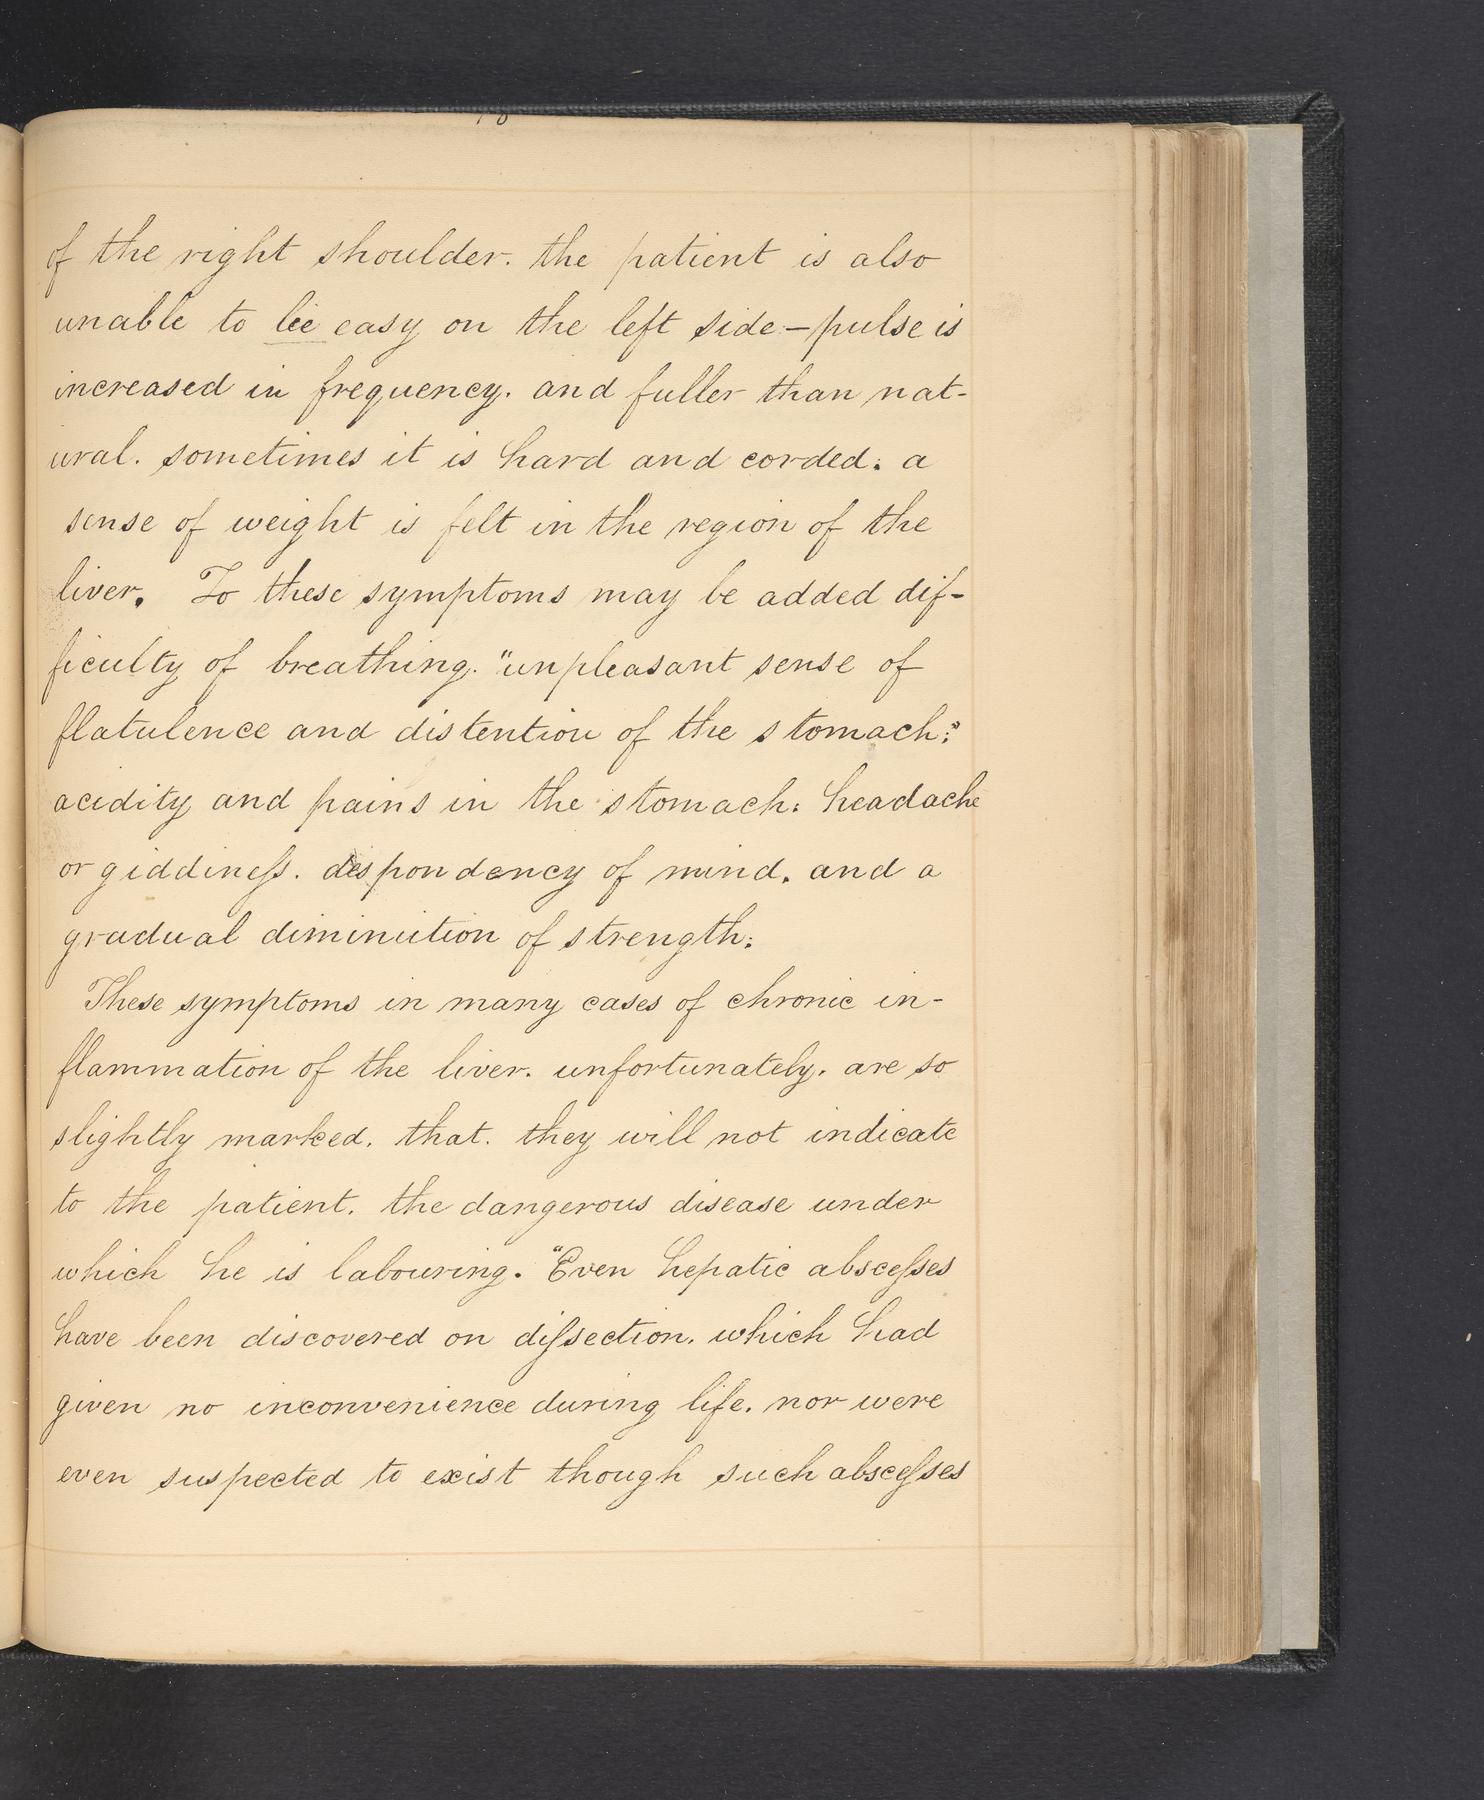 of the right shoulder. the patient is also
unable to lie easy on the left side — pulse is
increased in frequency. and fuller than nat-
ural. sometimes it is hard and corded: a
sense of weight is felt in the region of the
liver. To these symptoms may be added dif-
ficulty of breathing. "unpleasant sense of
flatulence and distention of the stomach:"
acidity and pains in the stomach: headache
or giddineſs. despondency of mind. and a
gradual diminution of strength:
These symptoms in many cases of chronic in-
flammation of the liver. unfortunately. are so
slightly marked. that. they will not indicate
to the patient. the dangerous disease under
which he is labouring. "Even hepatic absceſses
have been discovered on diſsection. which had
given no inconvenience during life. nor were
even suspected to exist though such absceſses